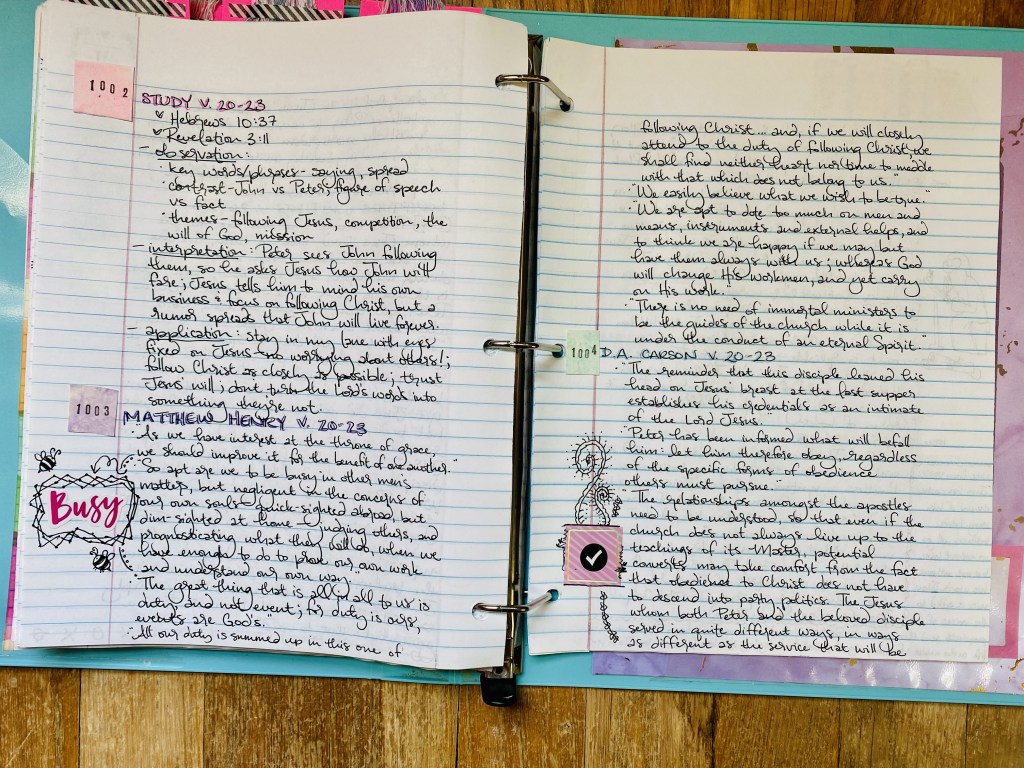 1002
STUDY V. 20-23
Hebrews 10:37
Revelation 3:11
- observation:
· key words/phrases - saying, spread
· contrast - John vs Peter; figure of speech
vs fact
· themes - following Jesus, competition, the
will of God, mission
- interpretation: Peter sees John following
them, so he asks Jesus how John will
fare; Jesus tells him to mind his own
business & focus on following Christ, but a
rumor spreads that John will live forever.
- application: stay in my lane with eyes
fixed on Jesus - no worrying about others!;
follow Christ as closely as possible; trust
Jesus' will; don't turn the Lord's words into
something they're not.
1003
MATTHEW HENRY V. 20-23
· "As we have interest at the throne of grace,
we should improve it for the benefit of one another."
· "So apt are we to be busy in other men's
matters, but negligent in the concerns of
our own souls - quick-sighted abroad, but
dim-sighted at home - judging others, and
prognosticating what they will do, when we
have enough to do to prove our own work
and understand our own way."
· "The great thing that is all in all to us is
duty, and not event; for duty is ours,
events are God's."
· "All our duty is summed up in this one of
Busy
following Christ... and, if we will closely
attend to the duty of following Christ, we
shall find neither heart nor time to meddle
with that which does not belong to us."
· "We easily believe what we wish to be true."
· "We are apt to dote too much on men and
means, instruments and external helps, and
to think we are happy if we may but
have them always with us; whereas God
will change His workmen, and yet carry
on His work."
· "There is no need of immortal ministers to
be the guides of the church while it is
under the conduct of an eternal Spirit."
1004
D.A. CARSON V. 20-23
· "The reminder that this disciple leaned his
head on Jesus' breast at the last supper
establishes his credentials as an intimate
of the Lord Jesus.
· "Peter has been informed what will befall
him: let him therefore obey, regardless
of the specific forms of obedience
others must pursue."
· "The relationships amongst the apostles
need to be understood, so that even if the
church does not always live up to the
teachings of its Master, potential
converts may take comfort from the fact
that obedience to Christ does not have
to descend into party politics. The Jesus
whom both Peter and the beloved disciple
served in quite different ways, in ways
as different as the service that will be